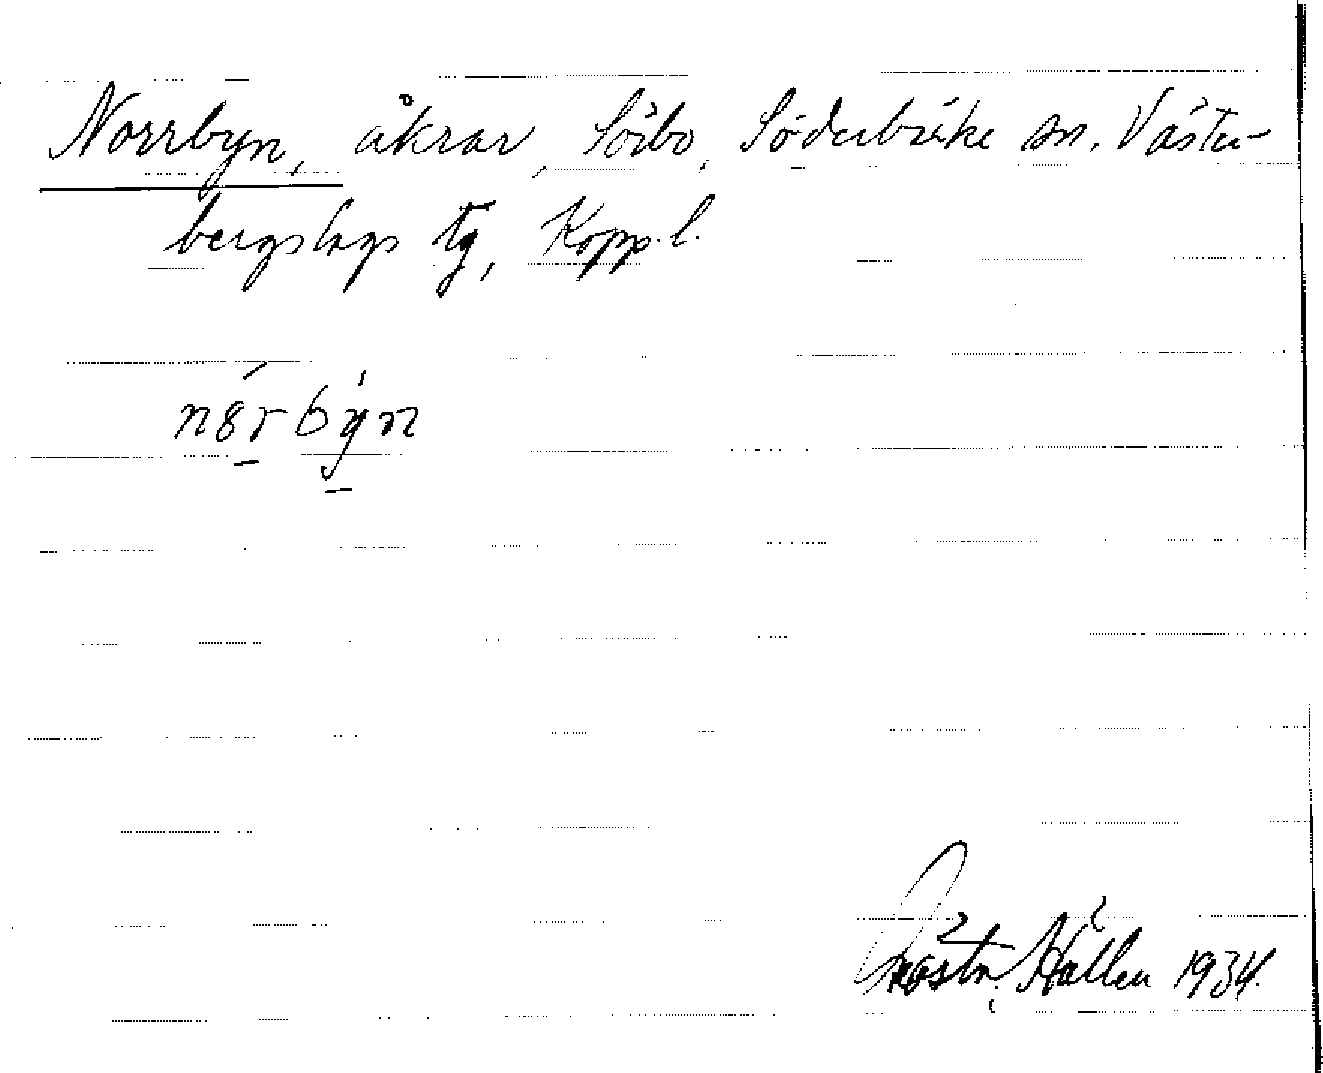 Norrbyn, åkrar, Söbo, Söderbärke sn, Väster-
bergslags tg, Kopp. l.
Hållen 1934.